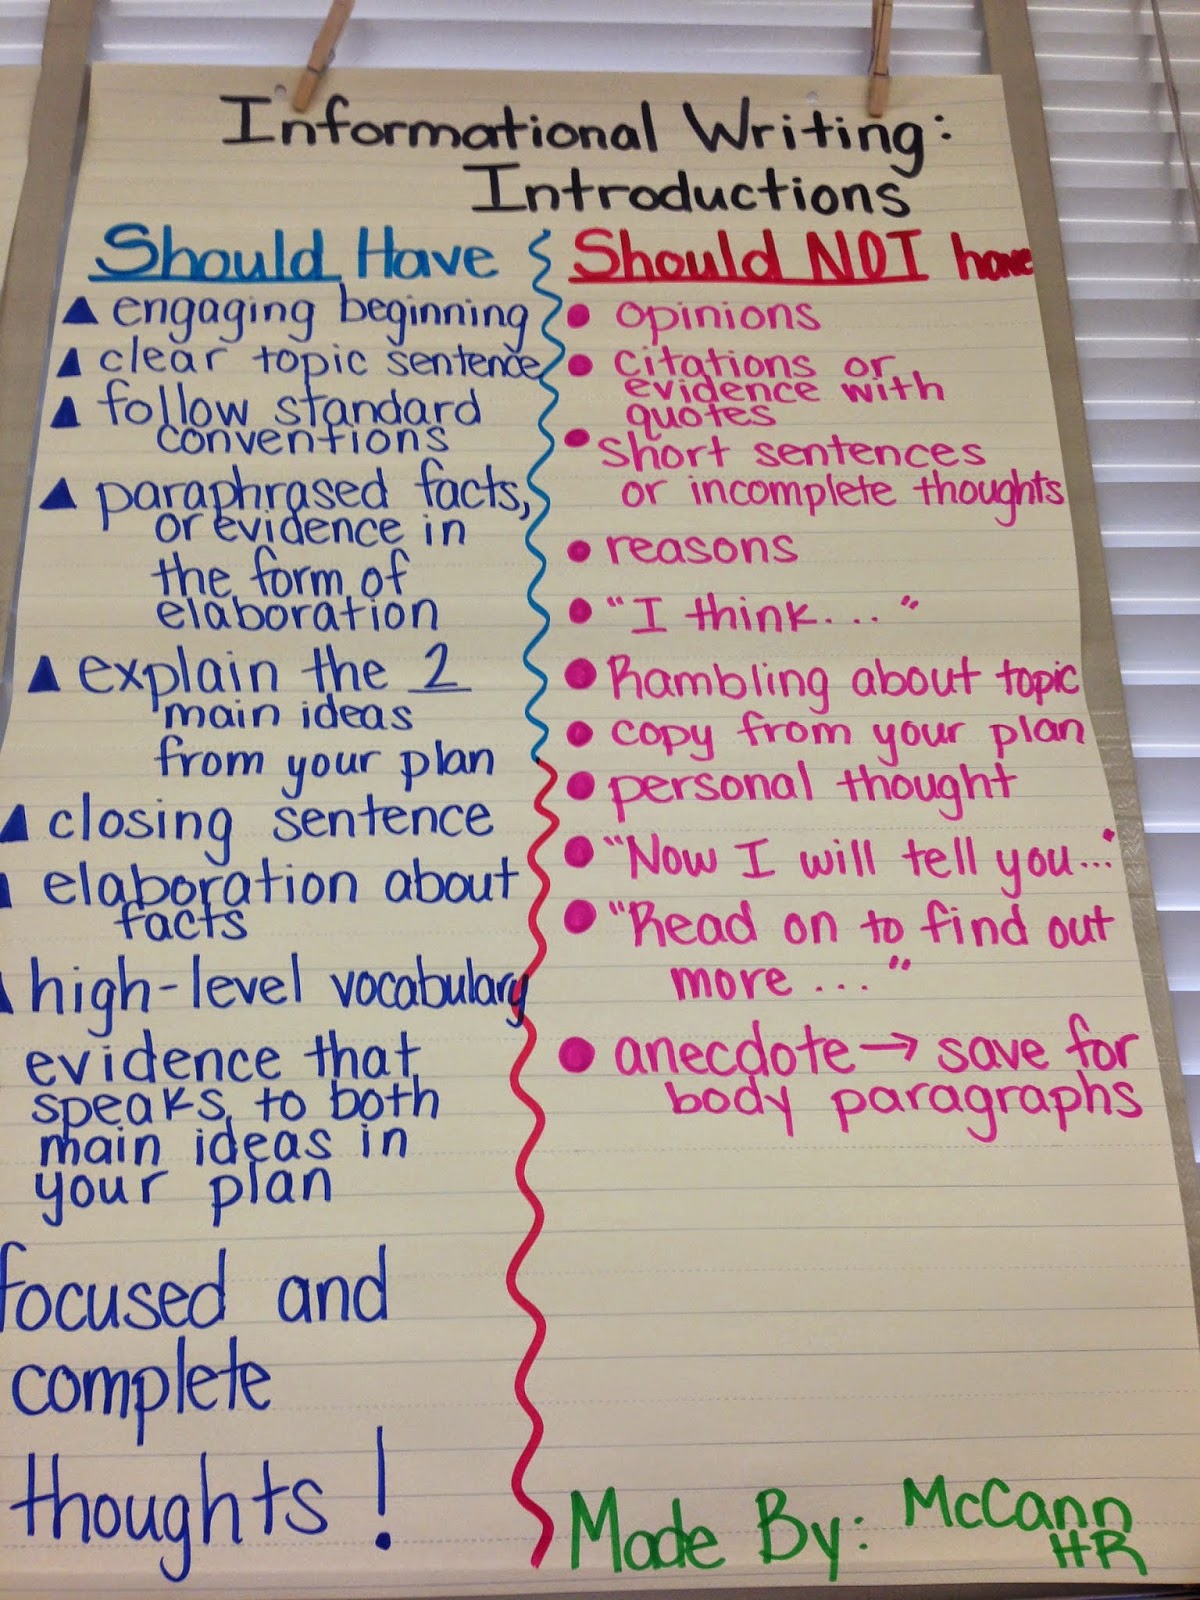 Informational Writing:
Introductions
Should Have
engaging beginning
clear topic sentence
follow standard
conventions
paraphrased facts,
or evidence in
the form of
elaboration
explain the 2
main ideas
from your plan
closing sentence
elaboration about
facts
high-level vocabulary
evidence that
speaks to both
main ideas in
your plan
focused and
complete
thoughts!
Should NOT have
opinions
citations or
evidence with
quotes
short sentences
or incomplete thoughts
reasons
"I think...."
Rambling about topic
copy from your plan
personal thought
"Now I will tell you..."
"Read on to find out
more ..."
anecdote → save for
body paragraphs
Made By: McCann
HR